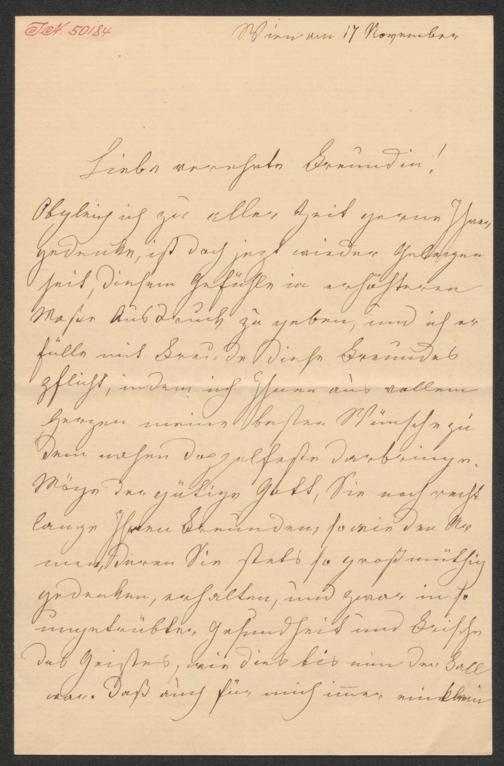 I.N. 50184
Wien am 17 November
Liebe verehrte Freundin!
Obgleich ich zu aller Zeit gerne Ihrer
gedenke, ist doch jezt wieder Gelegen
heit, diesem Gefühle in erhöhterem
Maße Ausdruck zu geben, und ich er
fülle mit Freude diese Freundes
pflicht, indem ich Ihnen aus vollem
Herzen meine besten Wünsche zu
dem nahen Doppelfeste darbringe.
Möge der gütige Gott, Sie noch recht
lange Ihren Freunden, sowie den Ar
men, deren Sie stets so großmüthig
gedenken, erhalten, und zwar in so
ungetrübter Gesundheit und Frische
des Geistes, wie dies bis nun der Fall
war. Daß auch für mich immer ein klein